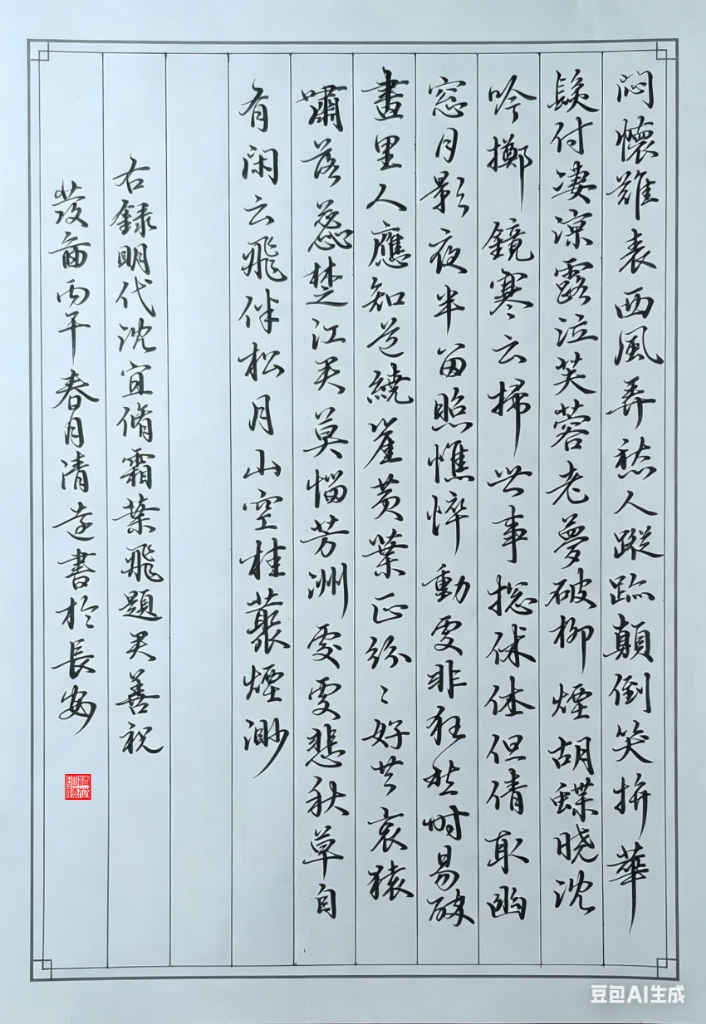 闷懷難表西風弄愁人蹤跡顛倒笑拚華
髮付凄涼露泣芙蓉老夢破柳煙胡蝶曉沈
吟擲鏡寒云掃世事揔休休但倩取幽
窓月影夜半留照憔悴動處非狂愁時易醉
畫里人應知道繞籬黄葉正紛〻好共哀猿
嘯落蕊楚江君莫惱芳洲處處悲秋草自
有闲云飛伴松月山空桂叢煙渺
右録明代沈宜脩霜葉飛題君善祝
髮圖丙午春月清遠書於長安
豆包AI生成